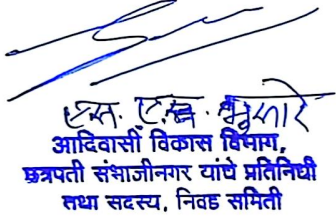 आदिवासी विकास विभाग,
छत्रपती संभाजीनगर यांचे प्रतिनिधी
तथा सदस्य, निवड समिती